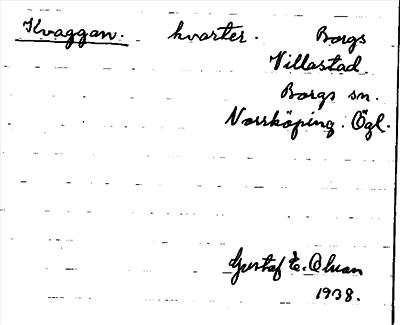 Kvaggan. kvarter. Borgs
Villastad
Borgs sn.
Norrköping. Ögl.
Gustaf E. Olsson
1938.